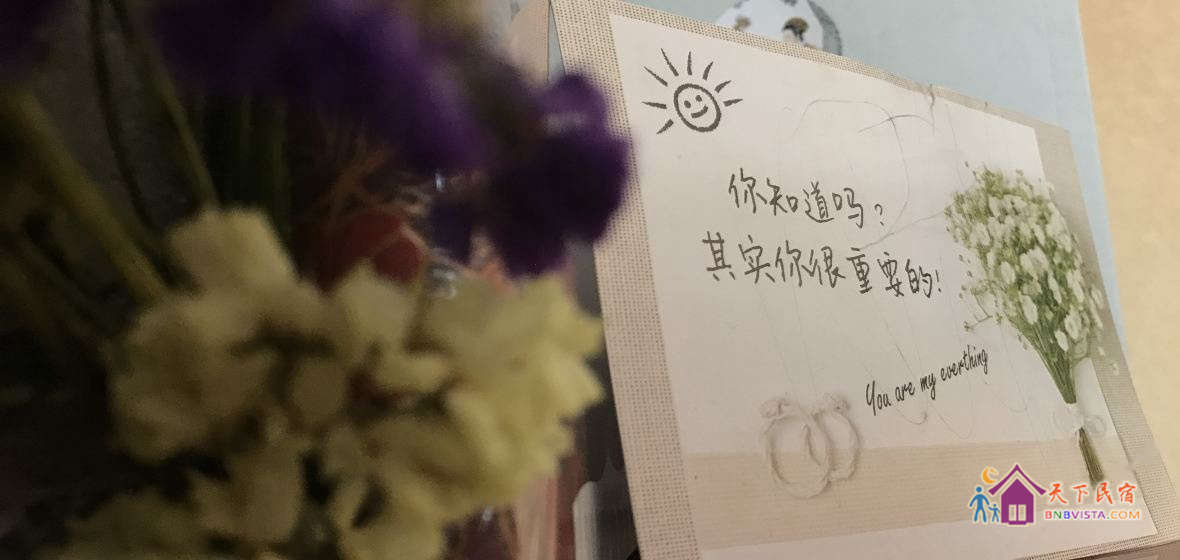 你知道吗?
其实你很重要的!
You are my everthing
天下民宿
BNBVISTA.COM